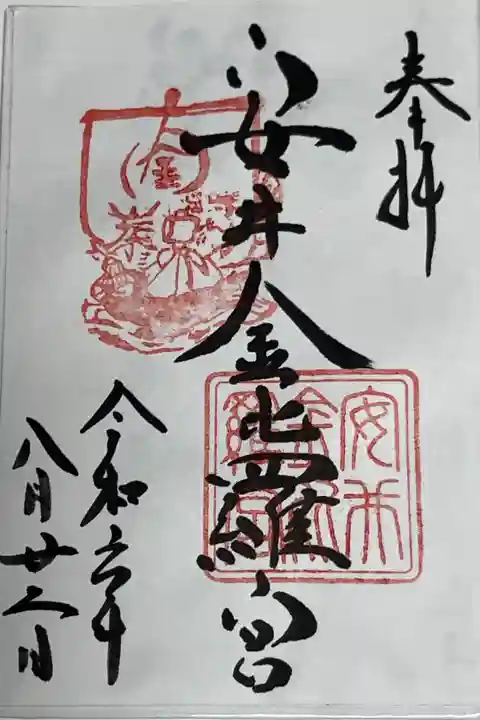 奉拝
安井金比羅宮
令和六年
八月廿二日